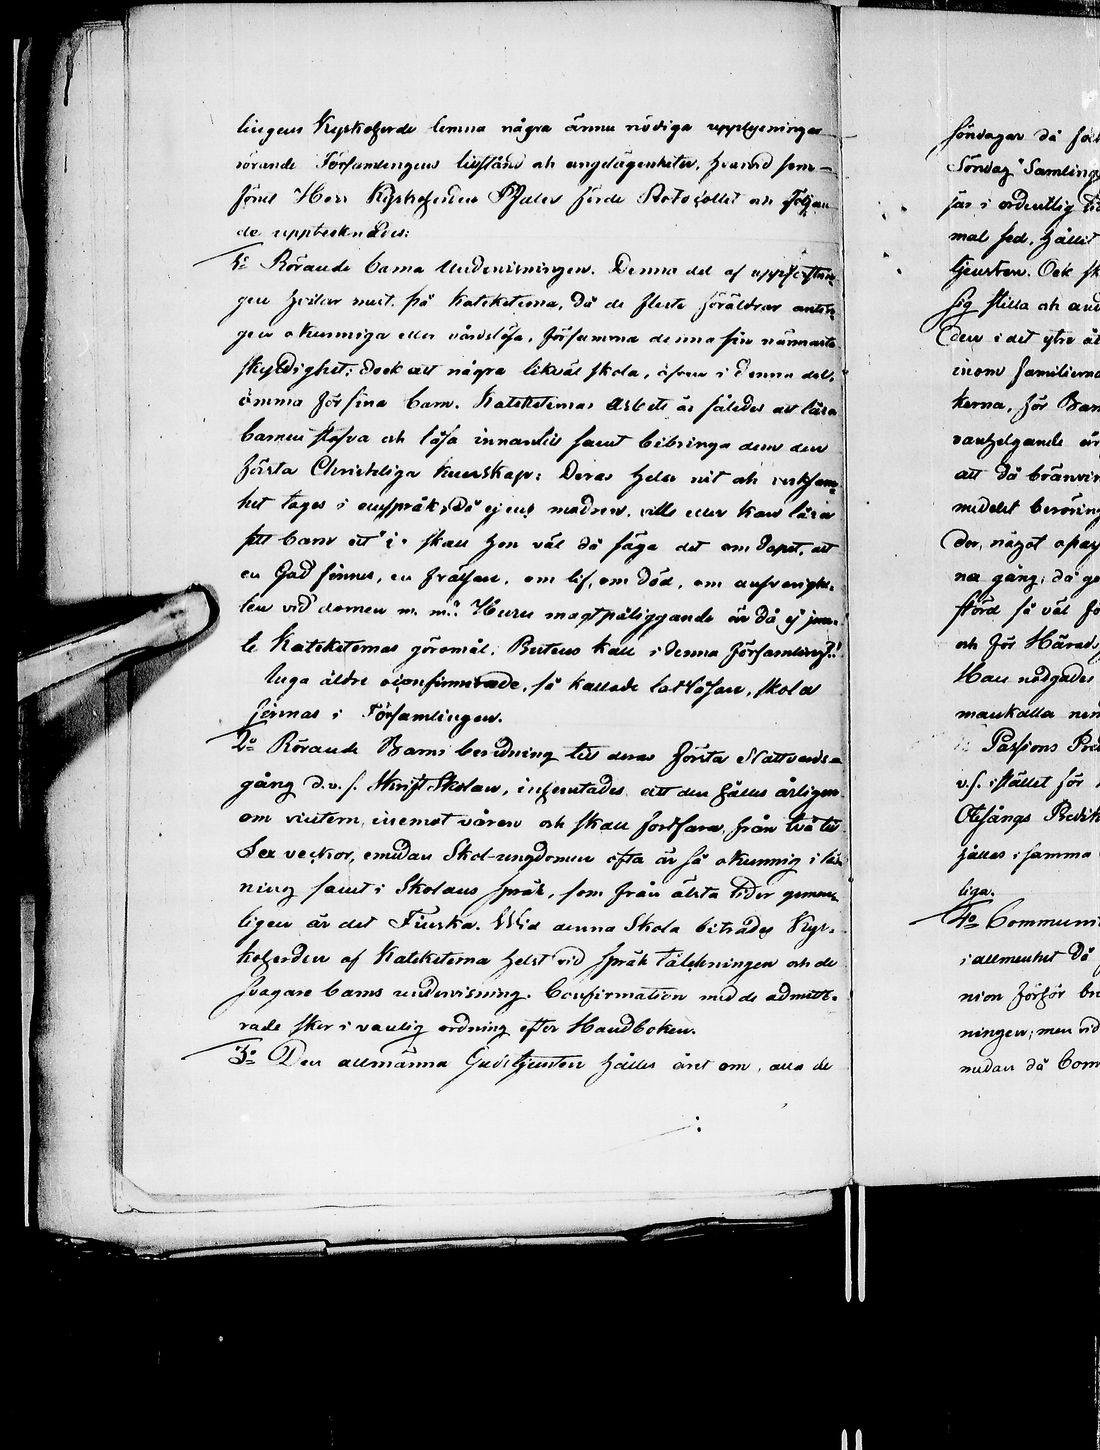 lingens Kyrkoherde lemna några ännu nödiga upplysningar
rörande Församlingens tillstånd och angelägenheter, hvarvid
förut Herr Kyrkoherden förde Protocollet och följan
de upptecknades:
1o Rörande barna Undervisningen. Denna del af uppfostrin
gen hvilar mest på Kateketerna, då de fleste föräldrar antin
gen okunniga eller vårdslösa, försumma denna sin närmaste
skyldighet; dock att några likväl skola, äfven i denna del,
ömma för sina barn. Kateketernas arbete är således at lära
barnen stafva och läsa innantil samt bibringa dem den
första Christeliga kunskap: Deras helsa nit och verksam-
het tages i anspråk, då ej ens modren vill eller kan lära
sitt barn ett i. skall hon väl då säga det om dopet, att
en Gud finnes, en frälsare, om lif, om död, om
ten vid domen m. m.? Huru magtpåliggande är då ej
Kateketernas göromål. Buteus kall i denna församling?
Inga äldre oconfirmerade, så kallade lattläsare, skola
finnas i Församlingen.
2o Rörande Barns beredning til deras första Nattvards-
gång d.v.s. Skrift Skolan, inhemtades att den hålles årligen
om vintern, inemot våren och skall fortfara från två til
Sex veckor, emedan Skol-ungdomen ofta är så okunnig i läs
ning samt i Skolans språk, som från älsta tider gemen
ligen är det Finska. Wid denna Skola biträdes Kyr-
koherden af Kateketerna helst vid språk och de
svagare barns undervisning. Confirmation med de admitte-
rade sker i vanlig ordning efter Handboken.
3o Den allmänna Gudstjensten hålles året om, alla de
söndagar då
Söndag Samling
i ordentlig
mal sed, hållit
tjensten. Och
sig stilla och
den i det yttre
inom familierna
kerna, för Barn
vanhelgande är
att då bränvin
medelst beröring
der, något
na gång; då
störd så väl
och för Härads
Han nödgades
mankalla
Passions
v.s. i stället för
Otesångs
hålles i samma
liga.
4o Communi
i allmenhet då
nion förhör
ningen; men vid
medan då Com